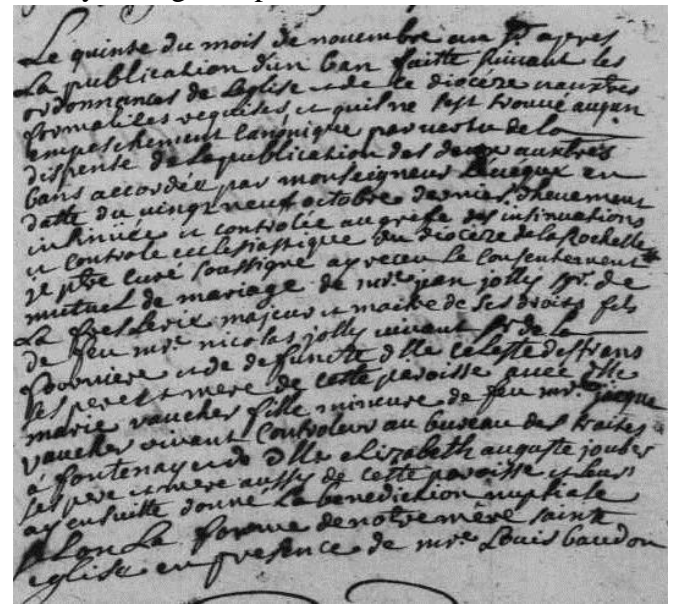 Le quinze du mois de novembre an apres
La publication d'un ban faitte suivant les
ordonnances de leglise et de ce diocèze autres
formalites requises et quil ne sest trouvé aucun
empeschement canonique par vertu de la
dispense de la publication des deux auxtres
bans accordée par monseigneur L'évéque en
datte du vingt neuf octobre dernier dheuement
insinuée et controlée au grefe des insinuations
et controle eclesiastique du diocèze de la Rochelle
je ptre curé soussigné ay receu le Consentement
mutuel de mariage de mre jean jolly sr. de
La majeur et maitre de ses droits fils
de feu mre nicolas jolly vivant sr de la
et de defuncte dlle celeste
ses pere et mere de cette paroisse avec dlle
marie vaucher fille mineure de feu mre jacque
vaucher vivant Controleur au bureau des traites
a fontenay et de dlle elizabeth auguste joubert
ses pere et mere aussy de cette paroisse et leur
ay ensuitte donné La benediction nuptiale
selon La forme de notre mère sainte
eglise en presence de mre Louis baudon